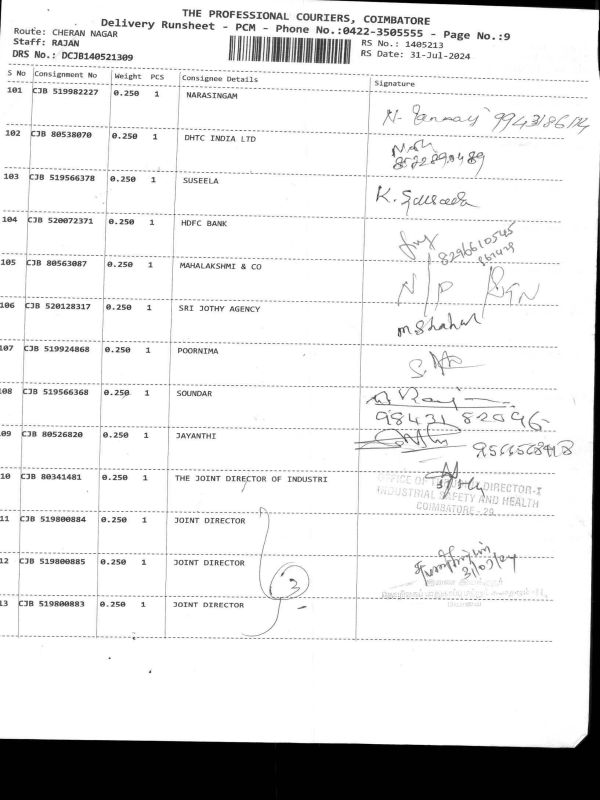 THE PROFESSIONAL COURIERS, COIMBATORE
Delivery Runsheet - PCM - Phone No.:0422-3505555 - Page No.:9
Route: CHERAN NAGAR
Staff: RAJAN
DRS No.: DCJB140521309
RS No.: 1405213
RS Date: 31-Jul-2024
S No Consignment No Weight PCS Consignee Details Signature
101 CJB 519982227 0.250 1 NARASINGAM
102 CJB 80538070 0.250 1 DHTC INDIA LTD
103 CJB 519566378 0.250 1 SUSEELA K.
104 CJB 520072371 0.250 1 HDFC BANK
8296610545
105 CJB 80563087 0.250 1 MAHALAKSHMI & CO
106 CJB 520128317 0.250 1 SRI JOTHY AGENCY
107 CJB 519924868 0.250 1 POORNIMA
08 CJB 519566368 0.250 1 SOUNDAR
98431 82096
09 CJB 80526820 0.250 1 JAYANTHI
10 CJB 80341481 0.250 1 THE JOINT DIRECTOR OF INDUSTRI
OFFICE OF DIRECTOR-I
INDUSTRIAL SAFETY AND HEALTH
COIMBATORE - 29.
11 CJB 519800884 0.250 1 JOINT DIRECTOR
12 CJB 519800885 0.250 1 JOINT DIRECTOR
3
13 CJB 519800883 0.250 1 JOINT DIRECTOR